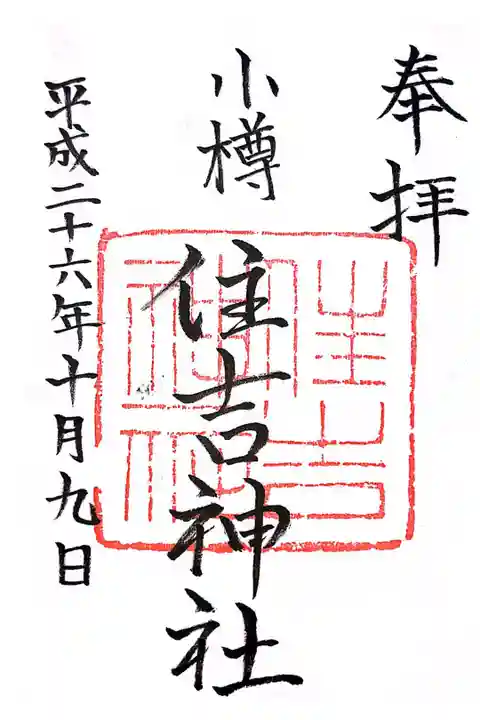 奉拝
小樽
住吉神社
平成二十六年十月九日
住吉
神社